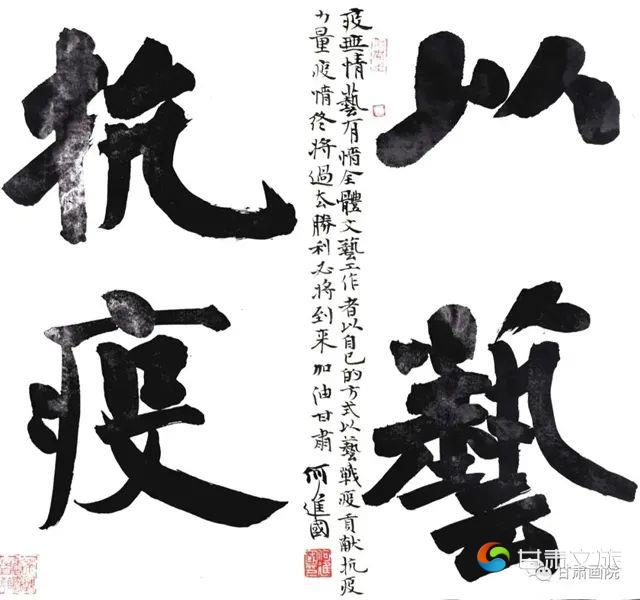 以藝
疫無情藝有情全體文藝工作者以自己的方式以藝戰疫貢献抗疫
力量疫情终将過去勝利必将到来加油甘肅 何進國
抗疫
甘肃文旅
甘肃画院